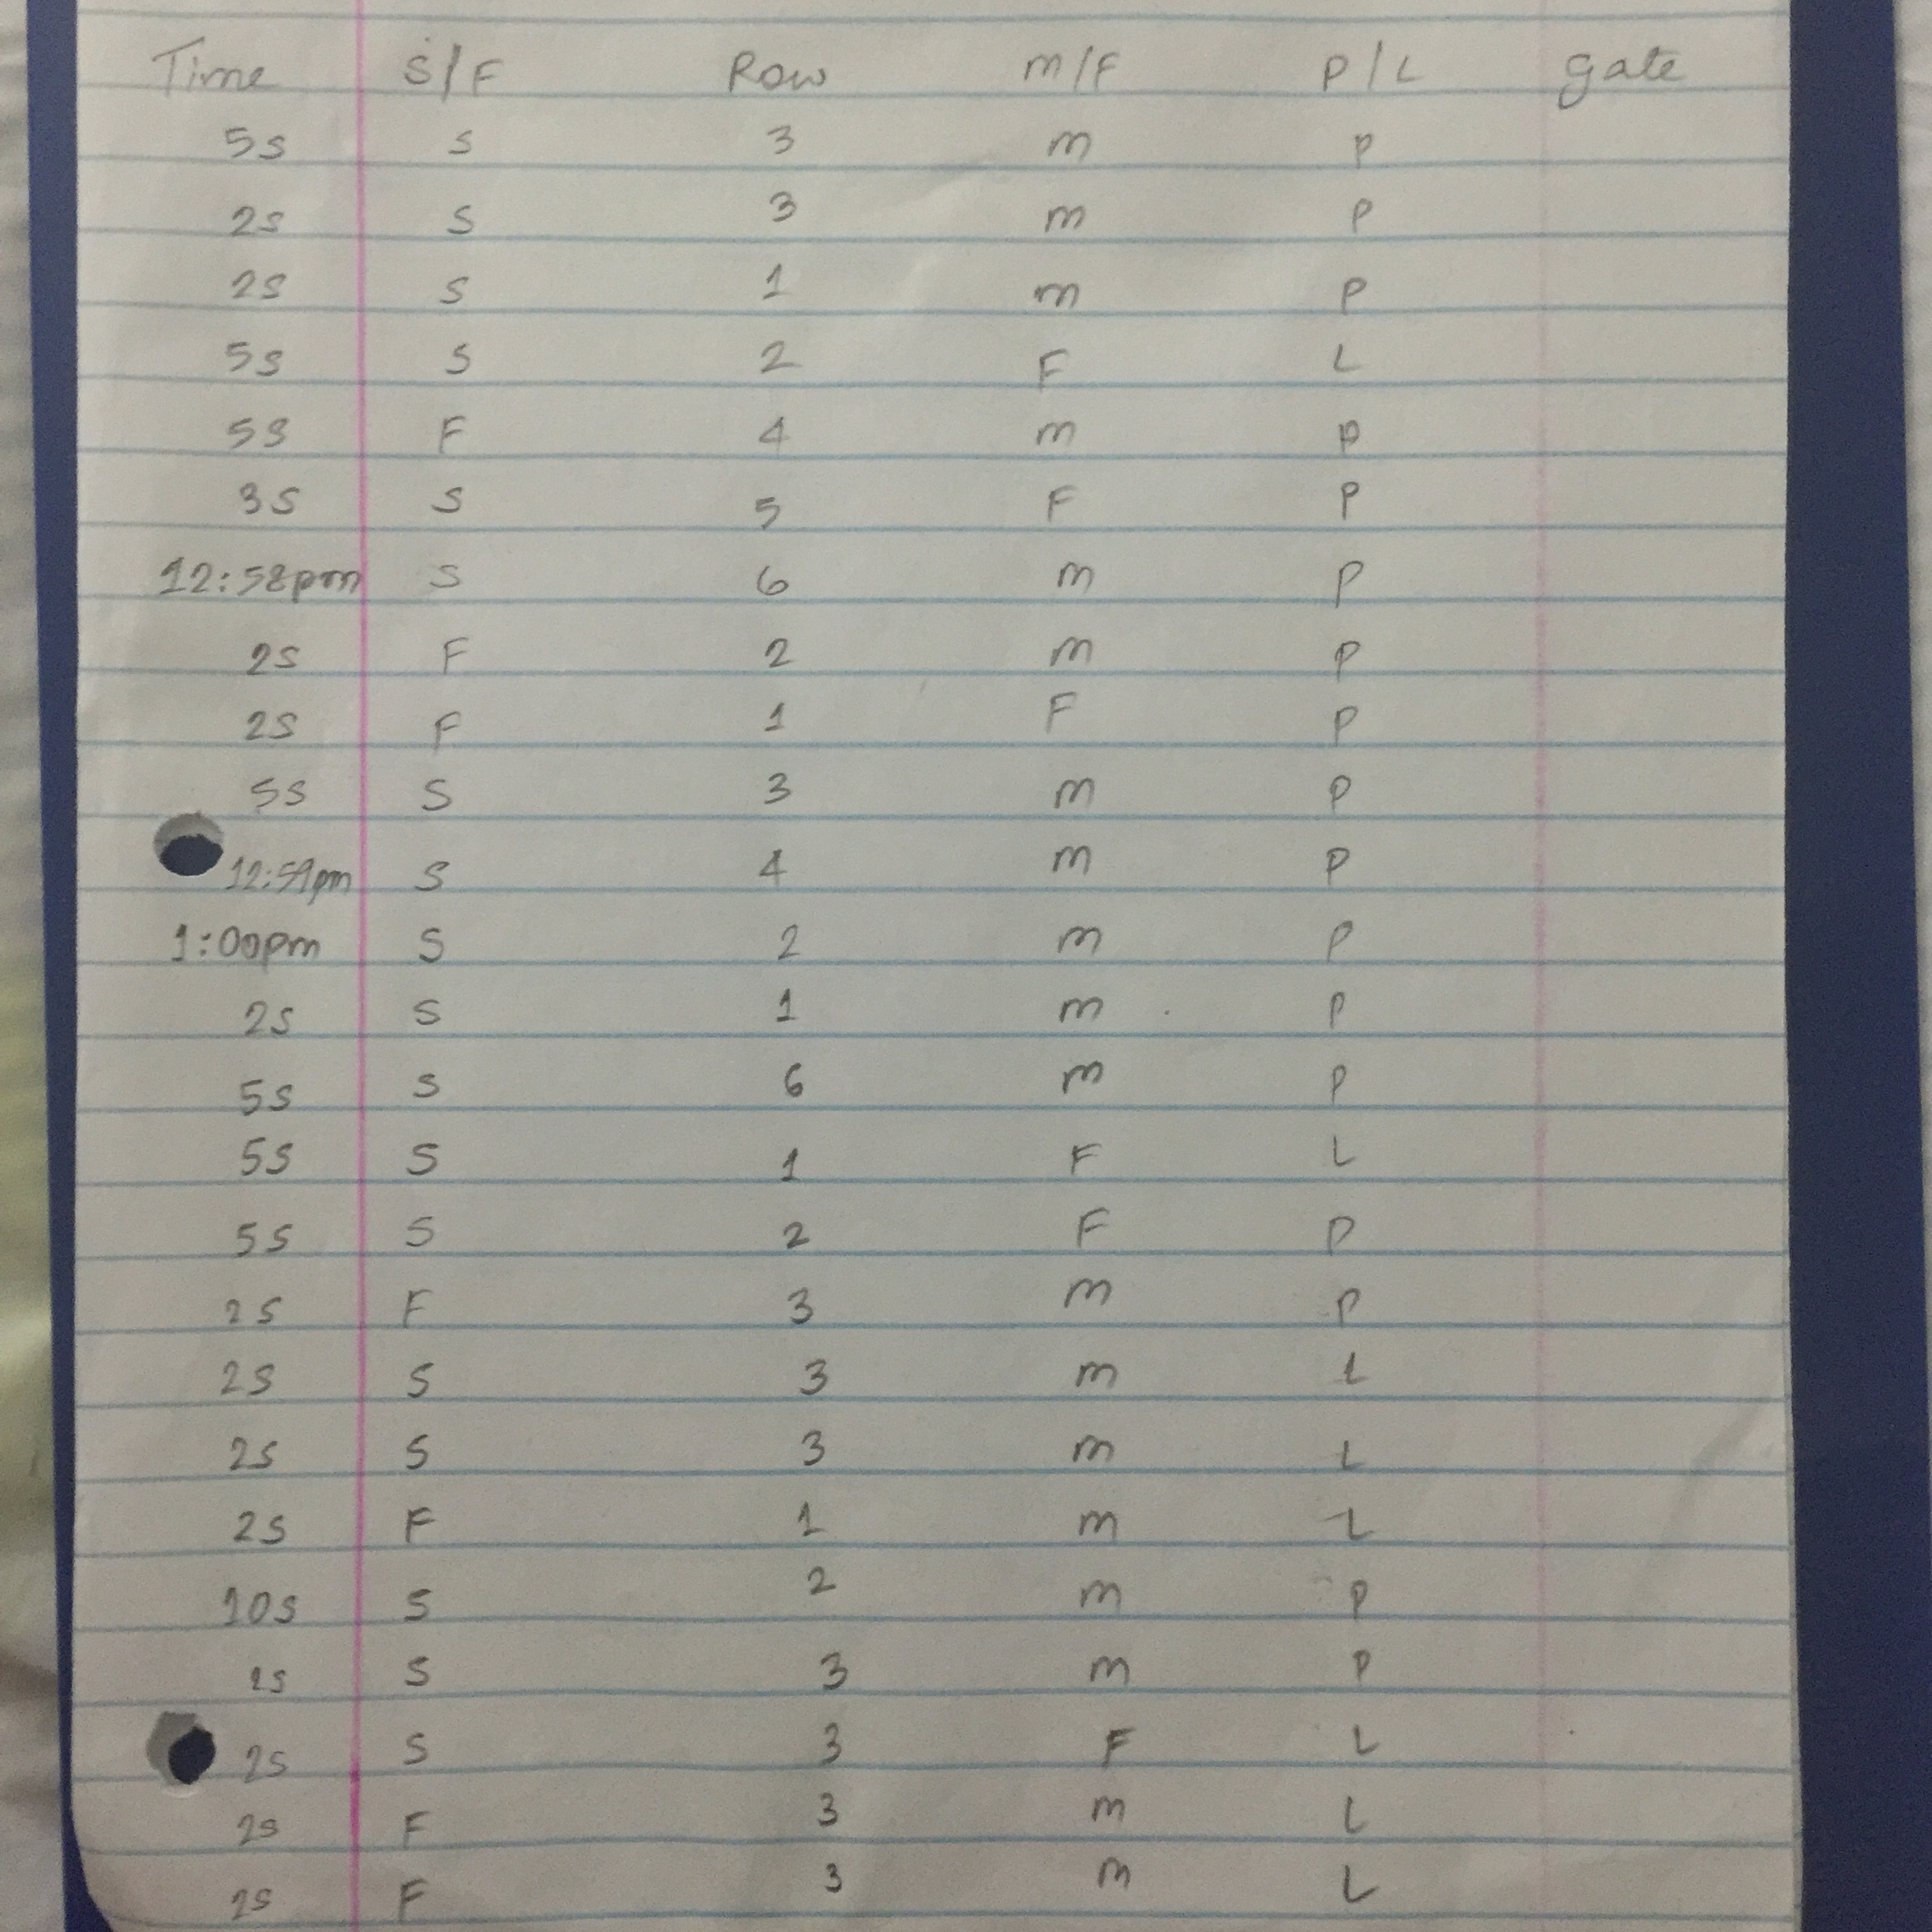 Time S/F Row m/F P/L gate
5s S 3 m P
2s S 3 m P
2s S 1 m P
5s S 2 F L
5s F 4 m P
3s S 5 F P
12:58pm S 6 m P
2s F 2 m P
2s F 1 F P
5s S 3 m P
12:59pm S 4 m P
1:00pm S 2 m P
2s S 1 m P
5s S 6 m P
5s S 1 F L
5s S 2 F P
2s F 3 m P
2s S 3 m L
2s S 3 m L
2s F 1 m L
10s S 2 m P
1s S 3 m P
2s S 3 F L
2s F 3 m L
2s F 3 m L